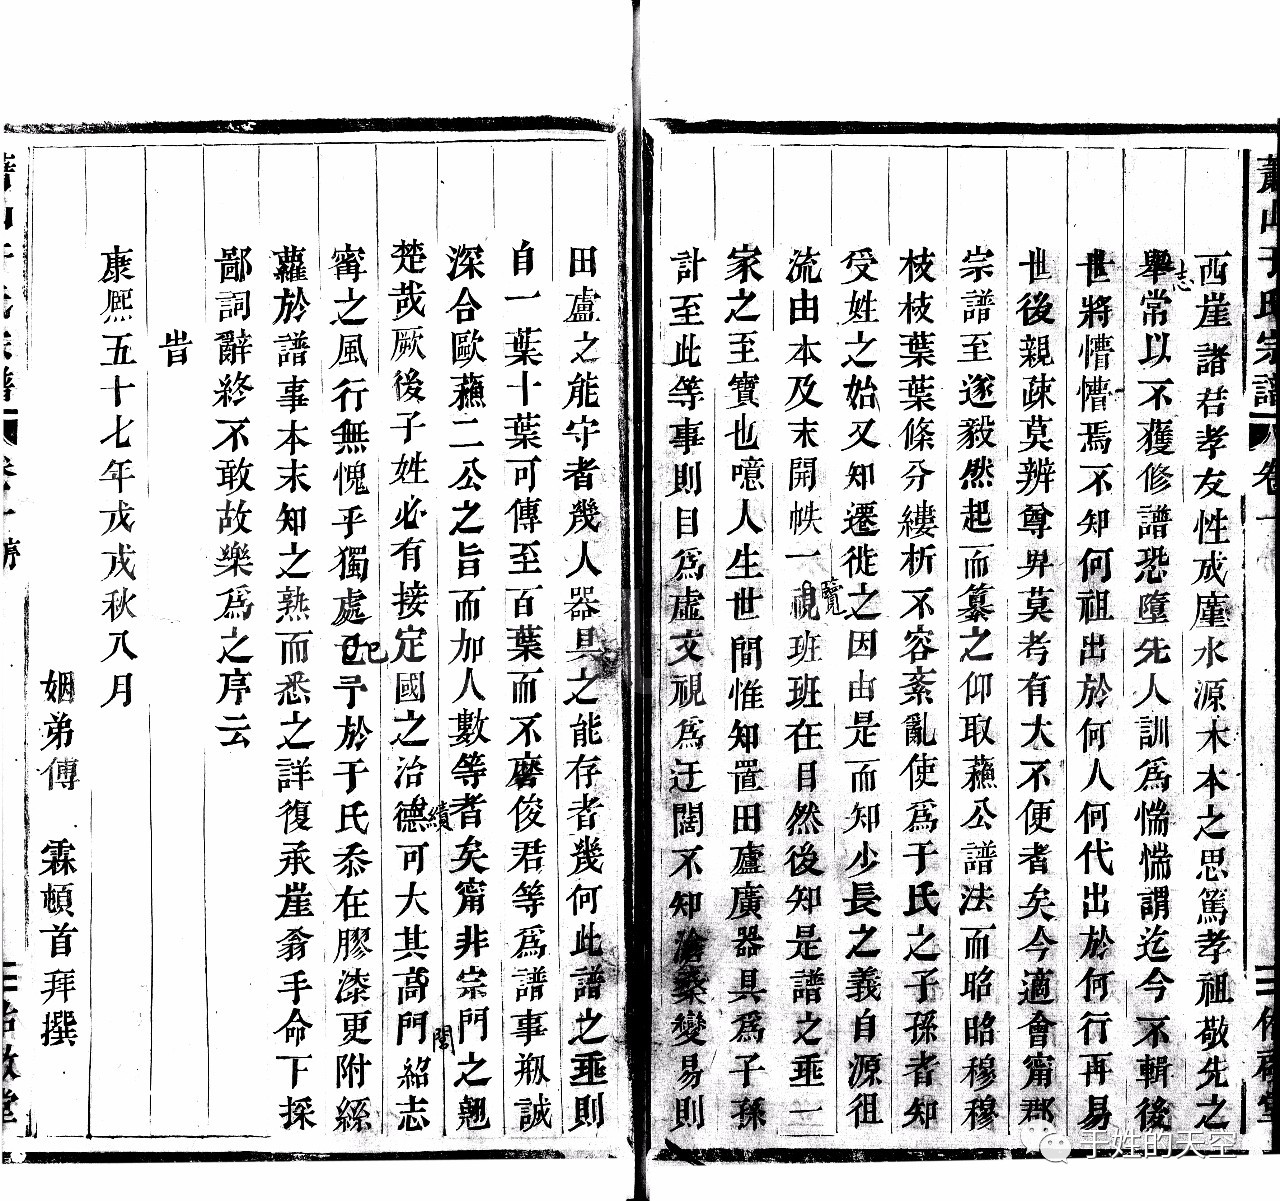 蕭山于氏宗譜 卷一
西崖諸君孝友性成廑水源木本之思篤孝祖敬先之
志
舉常以不獲修譜恐墮先人訓為惴惴謂迄今不輯後
世將懵懵焉不知何祖出於何人何代出於何行再易
世後親疎莫辨尊卑莫考有大不便者矣今適會甯郡
宗譜至遂毅然起而纂之仰取蘓公譜法而昭昭穆穆
枝枝葉葉條分縷析不容紊亂使爲于氏之子孫者知
受姓之始又知遷徙之因由是而知少長之義自源徂
流由本及末開帙一視班班在目然後知是譜之垂一
覽
家之至寳也噫人生世間惟知置田廬廣器具爲子孫
計至此等事則目爲虛文視爲迂闊不知滄桑變易則
田盧之能守者幾人器具之能存者幾何此譜之垂則
自一葉十葉可傳至百葉而不磨俊君等爲譜事瓶誠
深合歐蘓二公之旨而加人數等者矣甯非宗門之翹
楚哉厥後子姓必有接定國之治德可大其高門紹志
續
閭
甯之風行無愧乎獨處已予於于氏忝在膠漆更附絲
己
蘿於譜事本末知之熟而悉之詳復承崖翁手命下採
鄙詞辭終不敢故樂爲之序云
旹
康熙五十七年戊戌秋八月
姻弟傅 霖頓首拜撰
于姓的天空